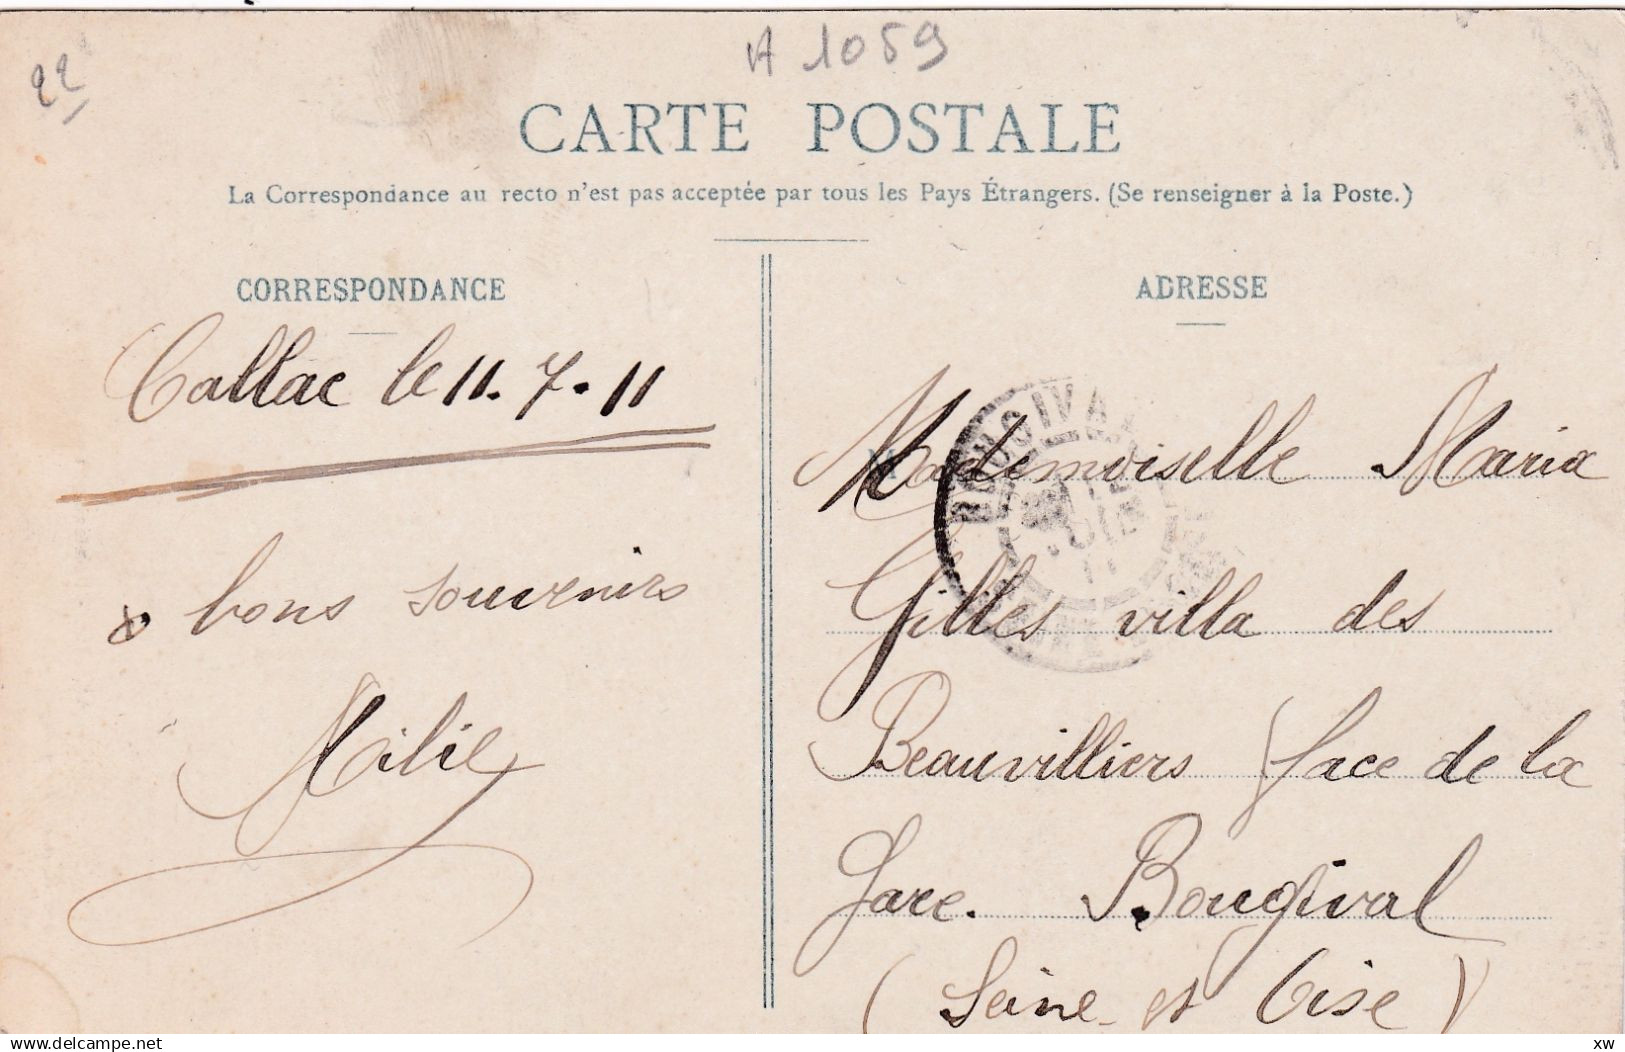 22
A 1059
CARTE POSTALE
La Correspondance au recto n'est pas acceptée par tous les Pays Étrangers. (Se renseigner à la Poste.)
CORRESPONDANCE
Callac le 11.7.11
bons souvenirs
Milie
ADRESSE
Mademoiselle Maria
Gilles villa des
Beauvilliers face de la
Gare. Bougival
(Seine et Oise)
BOUGIVAL
11
www.delcampe.net
xw